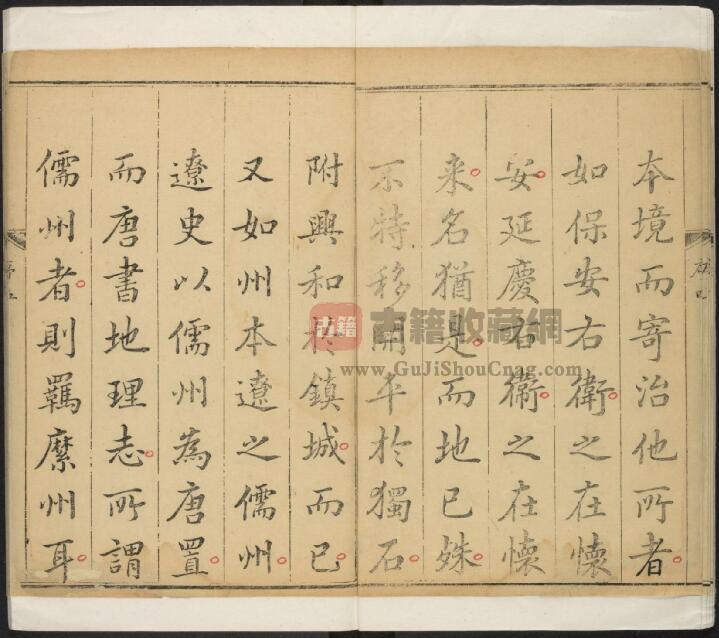 本境而寄治他所者
如保安右衛之在懷
安延慶右衛之在懷
来名猶是而地已殊
不特移開平於獨石
附興和於鎮城而已
又如州本遼之儒州
遼史以儒州為唐置
而唐書地理志所謂
儒州者則羈縻州耳
古籍
古籍收藏網
www.GuJiShouCnag.com